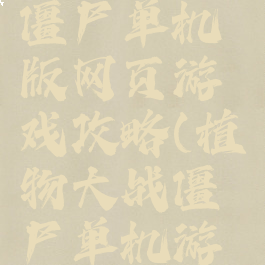 僵尸单机
版网页游
戏攻略(植
物大战僵
尸单机游